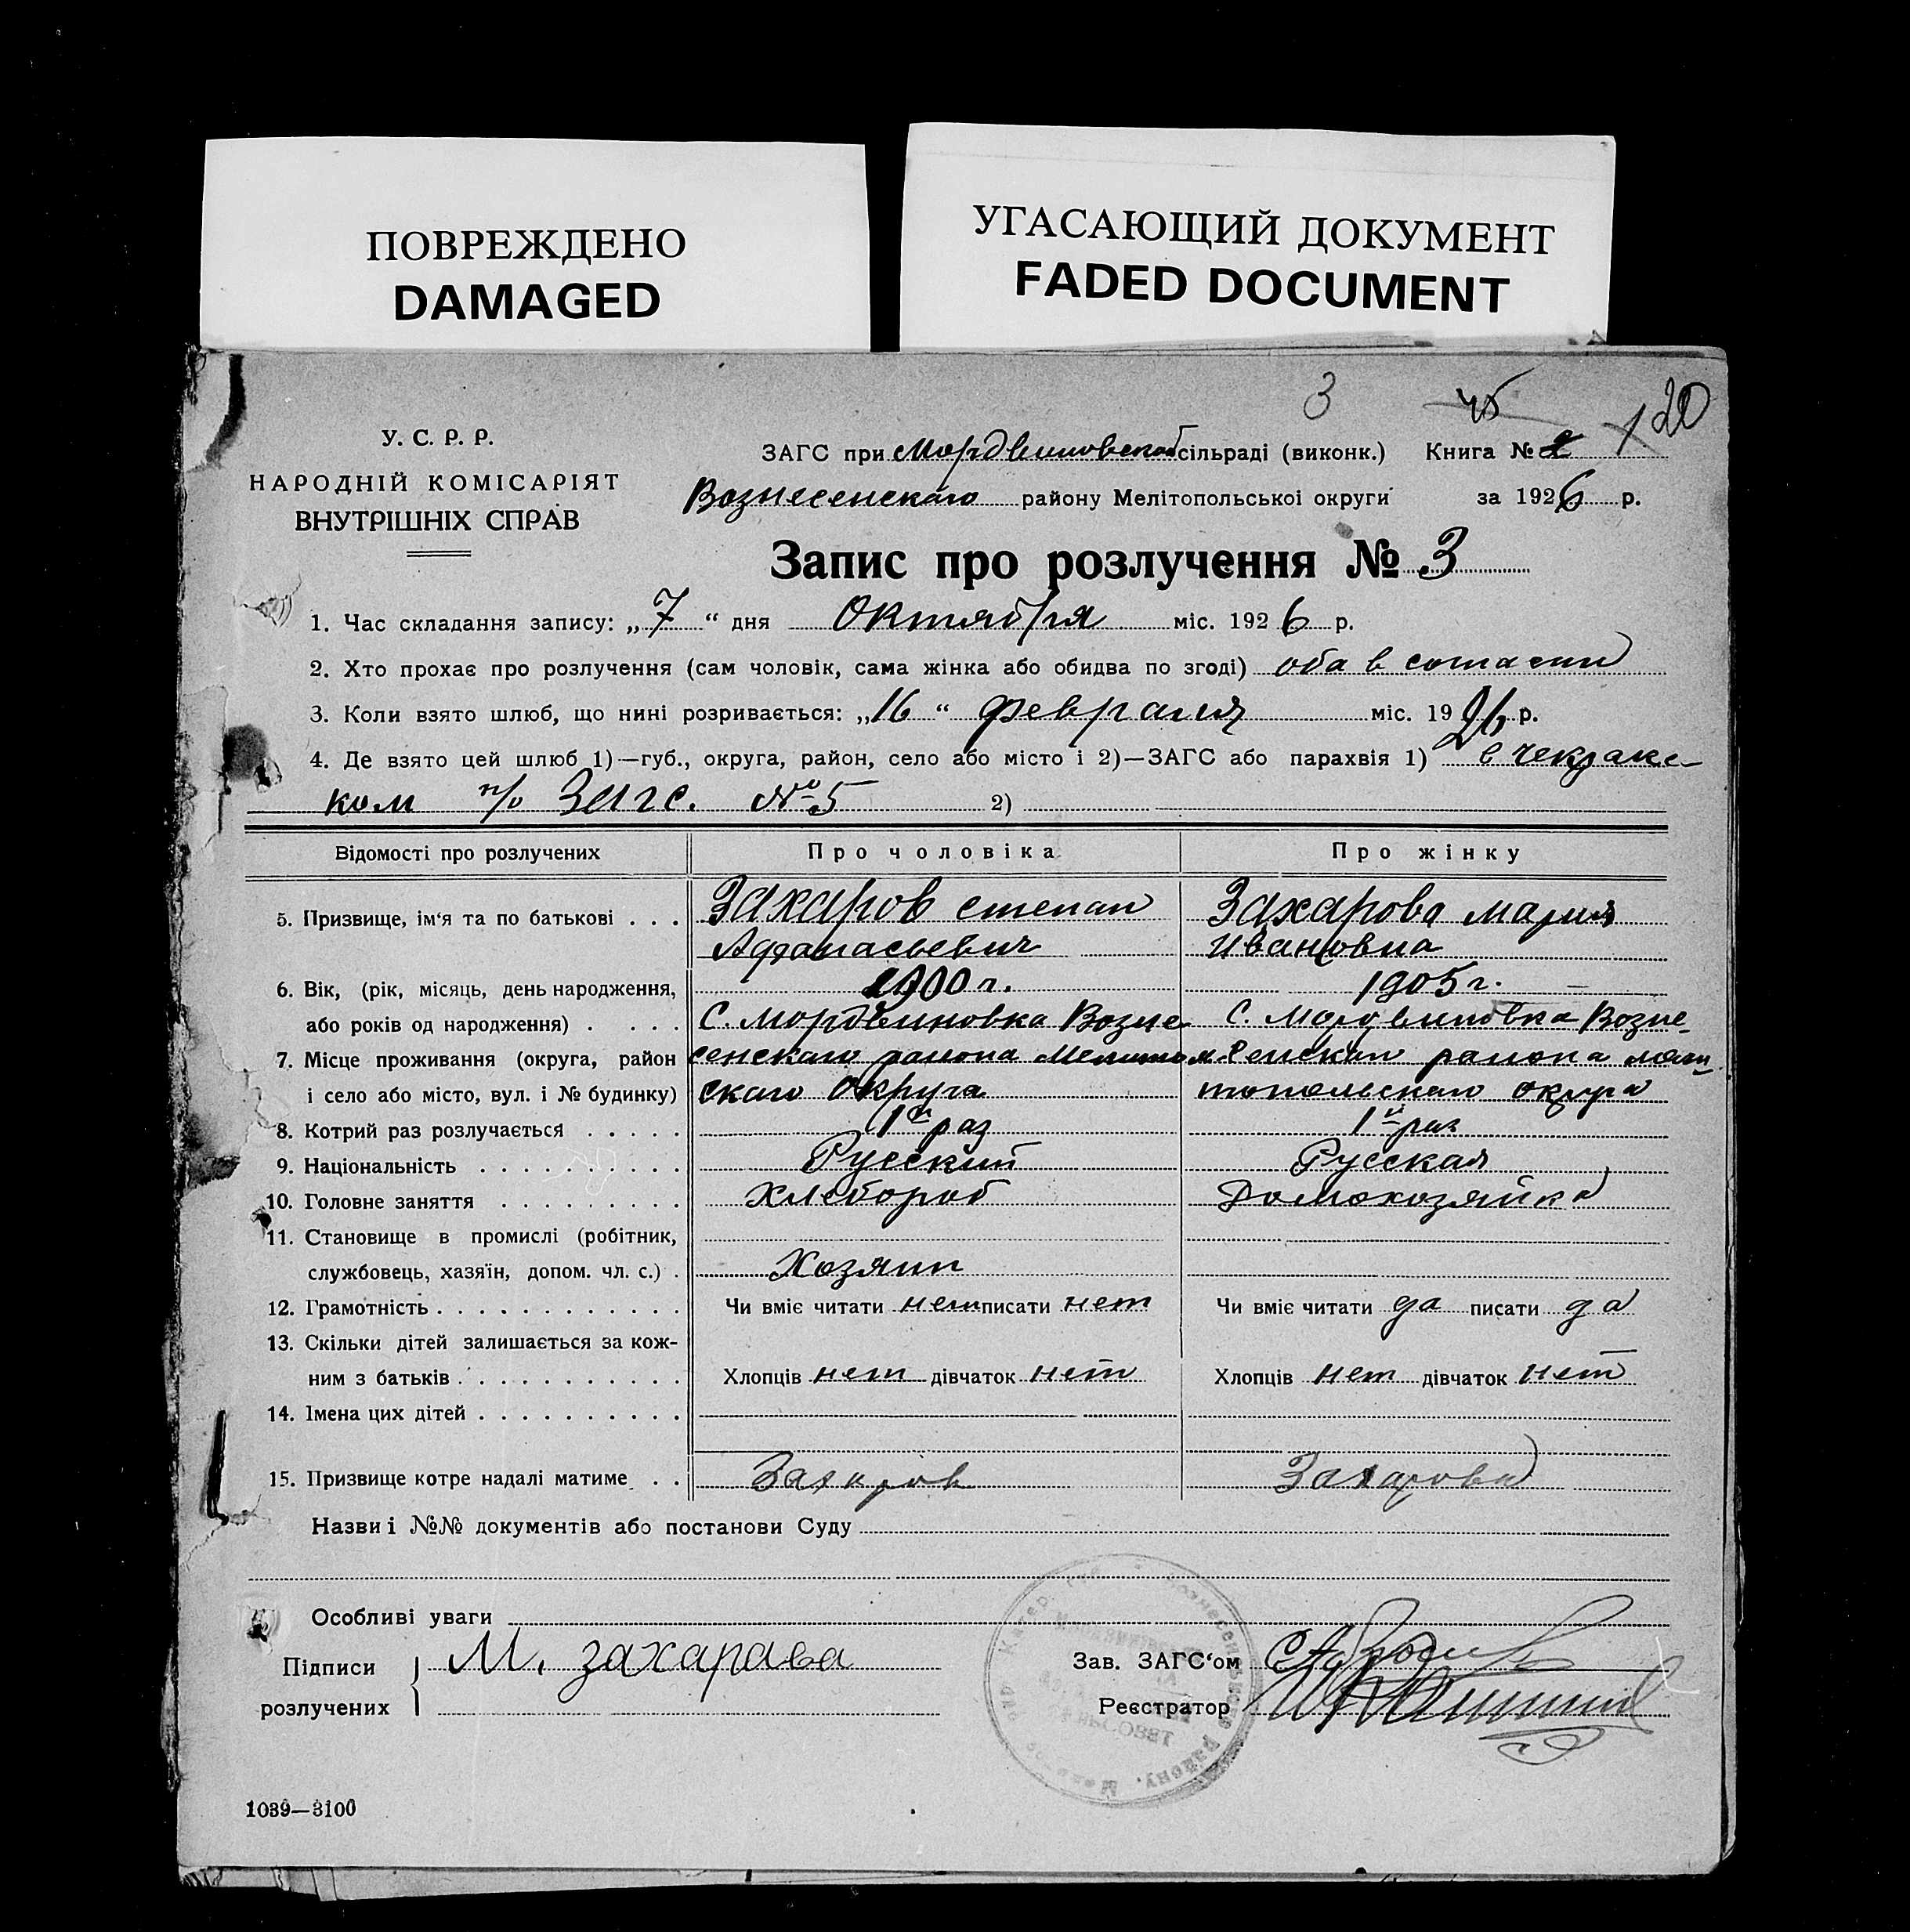 ПОВРЕЖДЕНО
DAMAGED
УГАСАЮЩИЙ ДОКУМЕНТ
FADED DOCUMENT
3 45 1 20
У. С. Р. Р.
НАРОДНІЙ КОМІСАРІЯТ
ВНУТРІШНІХ СПРАВ
ЗАГС при Мордвиновской сільраді (виконк.) Книга № 2
Вознесенскаго району Мелітопольської округи за 1926 р.
Запис про розлучення № 3
1. Час складання запису: „7“ дня Октября міс. 1926 р.
2. Хто прохає про розлучення (сам чоловік, сама жінка або обидва по згоді) оба в согласии
3. Коли взято шлюб, що нині розривається: „16“ февраля міс. 1926 р.
4. Де взято цей шлюб 1)—губ., округа, район, село або місто і 2)—ЗАГС або парахвія 1) в чекракс-
ком п/о Загс. № 5 2)
Відомості про розлучених Про чоловіка Про жінку
5. Призвище, ім‘я та по батькові . . . Захаров степан Захарова мария
Афанасьевич Ивановна
6. Вік, (рік, місяць, день народження, 1900 г. 1905 г.
або років од народження) . . . . . С. Мордвиновка Возне С. Мордвиновка Возне-
7. Місце проживання (округа, район сенскаго района Мелитопол сенскаго района мели
і село або місто, вул. і № будинку) скаго Округа топольскаго округа
8. Котрий раз розлучається . . . . . 1й раз 1й раз
9. Національність . . . . . . . . . . Русский Русская
10. Головне заняття . . . . . . . . . Хлебороб Домохозяйка
11. Становище в промислі (робітник,
службовець, хазяїн, допом. чл. с.) . Хозяин
12. Грамотність . . . . . . . . . . . . Чи вміє читати нет писати нет Чи вміє читати да писати да
13. Скільки дітей залишається за кож-
ним з батьків . . . . . . . . . . . Хлопців нет дівчаток нет Хлопців нет дівчаток нет
14. Імена цих дітей . . . . . . . . . .
15. Призвище котре надалі матиме . . Захаров Захарова
Назви і №№ документів або постанови Суду
Особливі уваги
Підписи М. захарава Зав. ЗАГС‘ом
розлучених Реєстратор
1039—3100